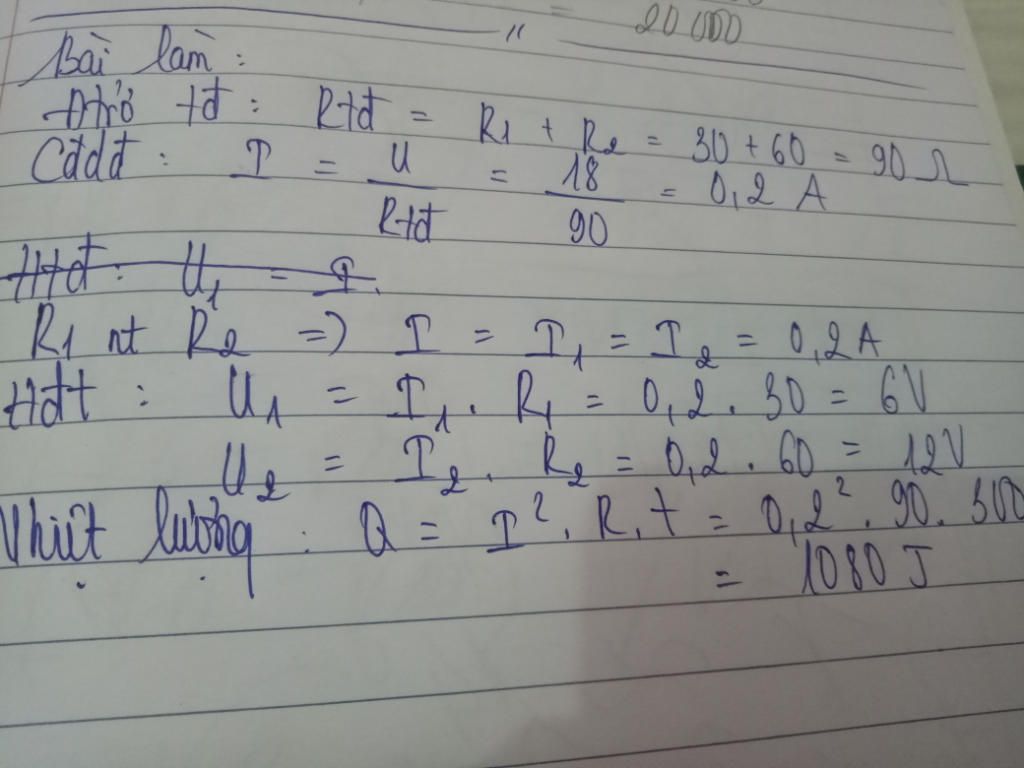 20 000
"
Bài làm :
Đtrở tđ : Rtđ = R1 + R2 = 30 + 60 = 90 Ω
Cđdđ : I = U / Rtđ = 18 / 90 = 0,2 A
Htđ : U1 = I
R1 nt R2 => I = I1 = I2 = 0,2 A
Hđt : U1 = I1 . R1 = 0,2 . 30 = 6V
U2 = I2 . R2 = 0,2 . 60 = 12V
Nhiệt lượng : Q = I² . R . t = 0,2² . 90 . 300
= 1080 J